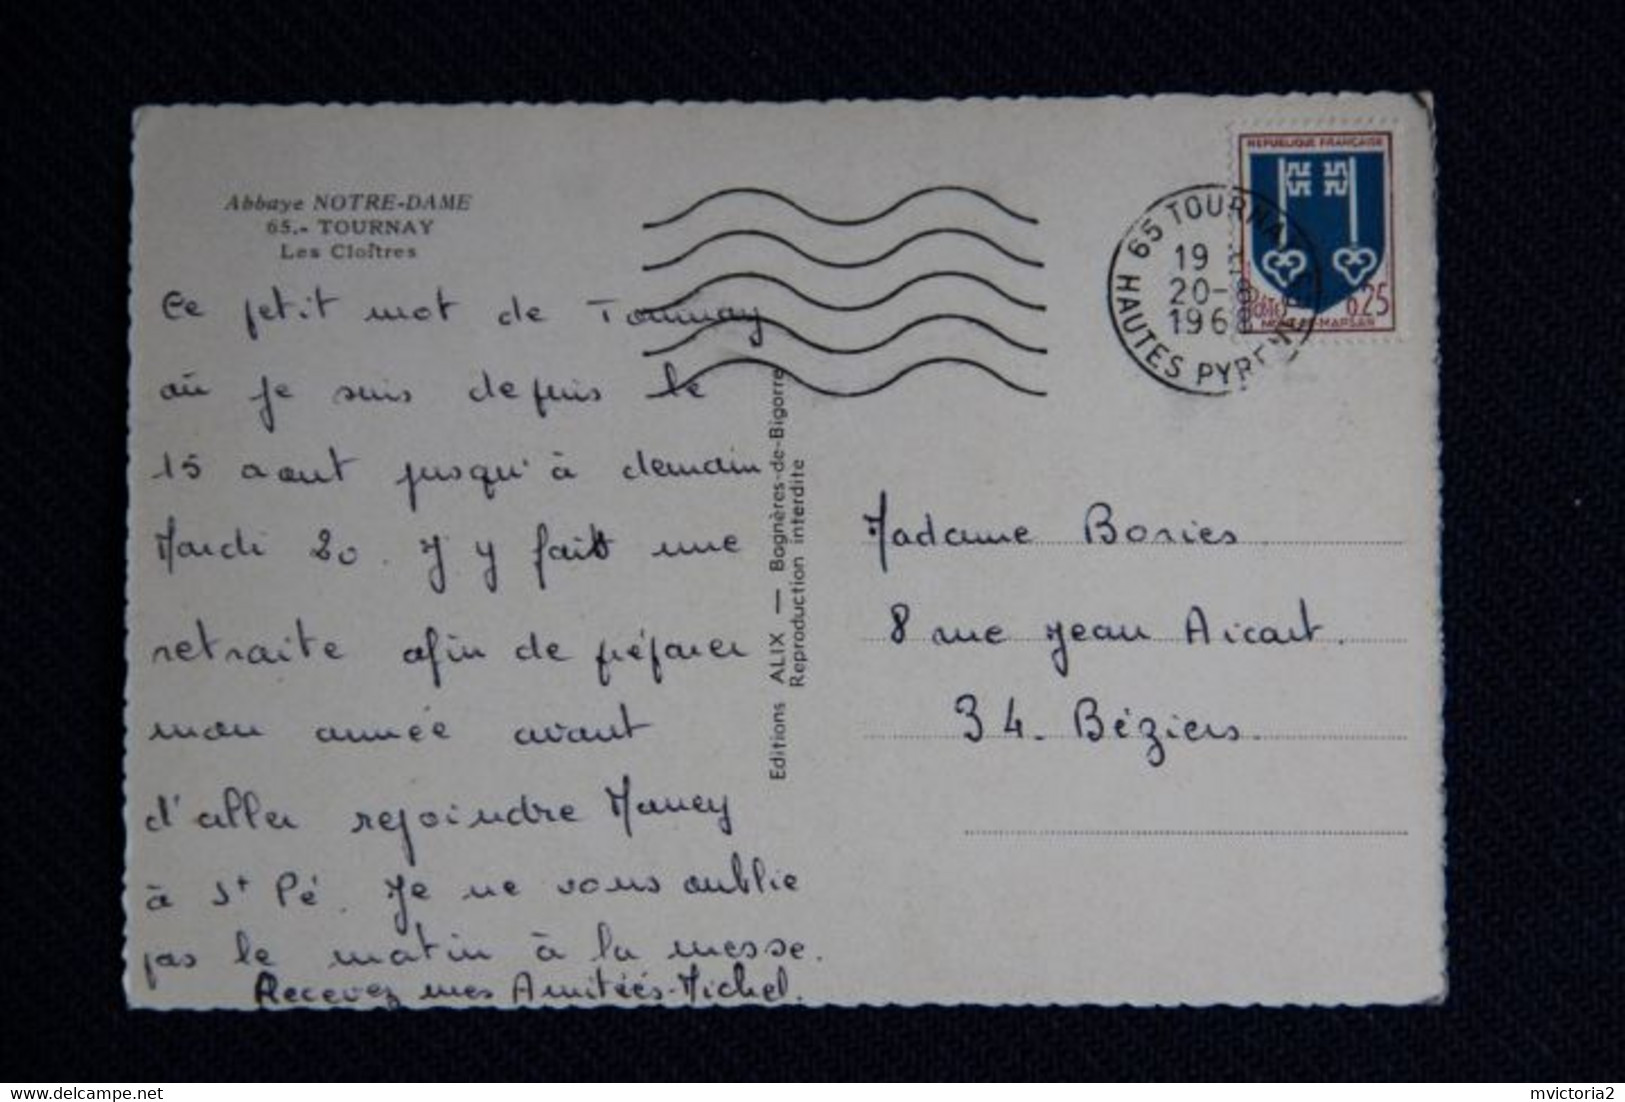 Abbaye NOTRE-DAME
65.- TOURNAY
Les Cloîtres
Ce petit mot de Tournay
où je suis depuis le
15 aout jusqu'à demain
Mardi 20. J'y fait une
retraite afin de préparer
mon année avant
d'aller rejoindre Nancy
à St Pé. Je ne vous oublie
pas le matin à la messe.
Recevez mes Amitiés-Michel.
Editions ALIX — Bagnères-de-Bigorre
Reproduction interdite
REPUBLIQUE FRANÇAISE
0,25
MONT-DE-MARSAN
65 TOURNAY
19 H
20-8
1968
HAUTES PYRENEES
Madame Bories
8 rue Jean Aicart.
34. Béziers.
mvictoria2